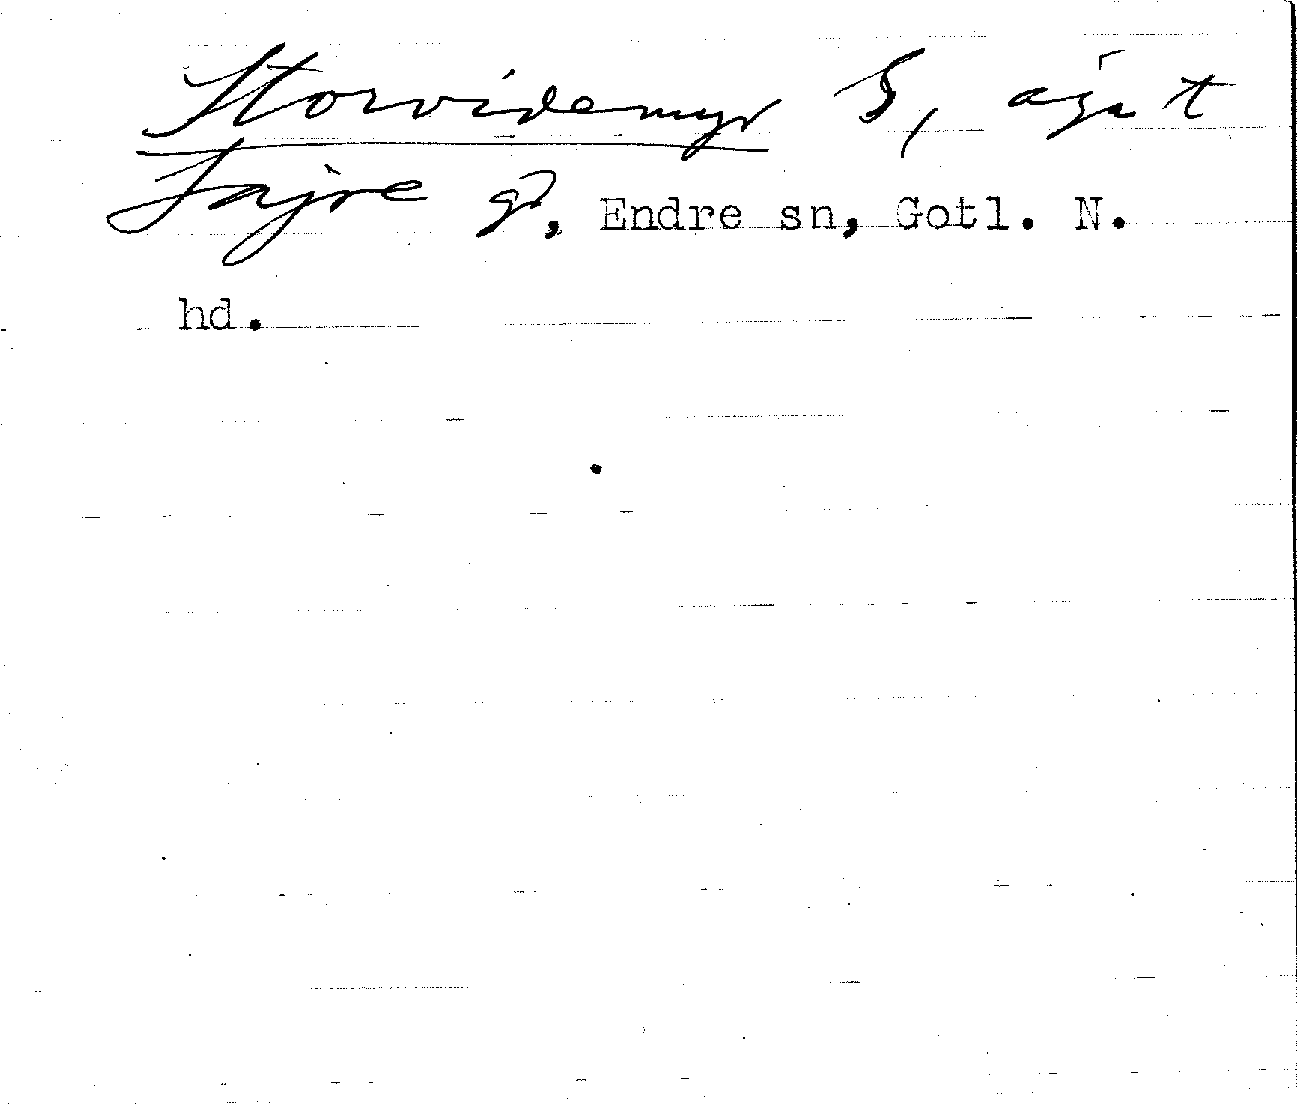 Storvidemyr S, äga t
Fajre gd, Endre sn, Gotl. N.
hd.